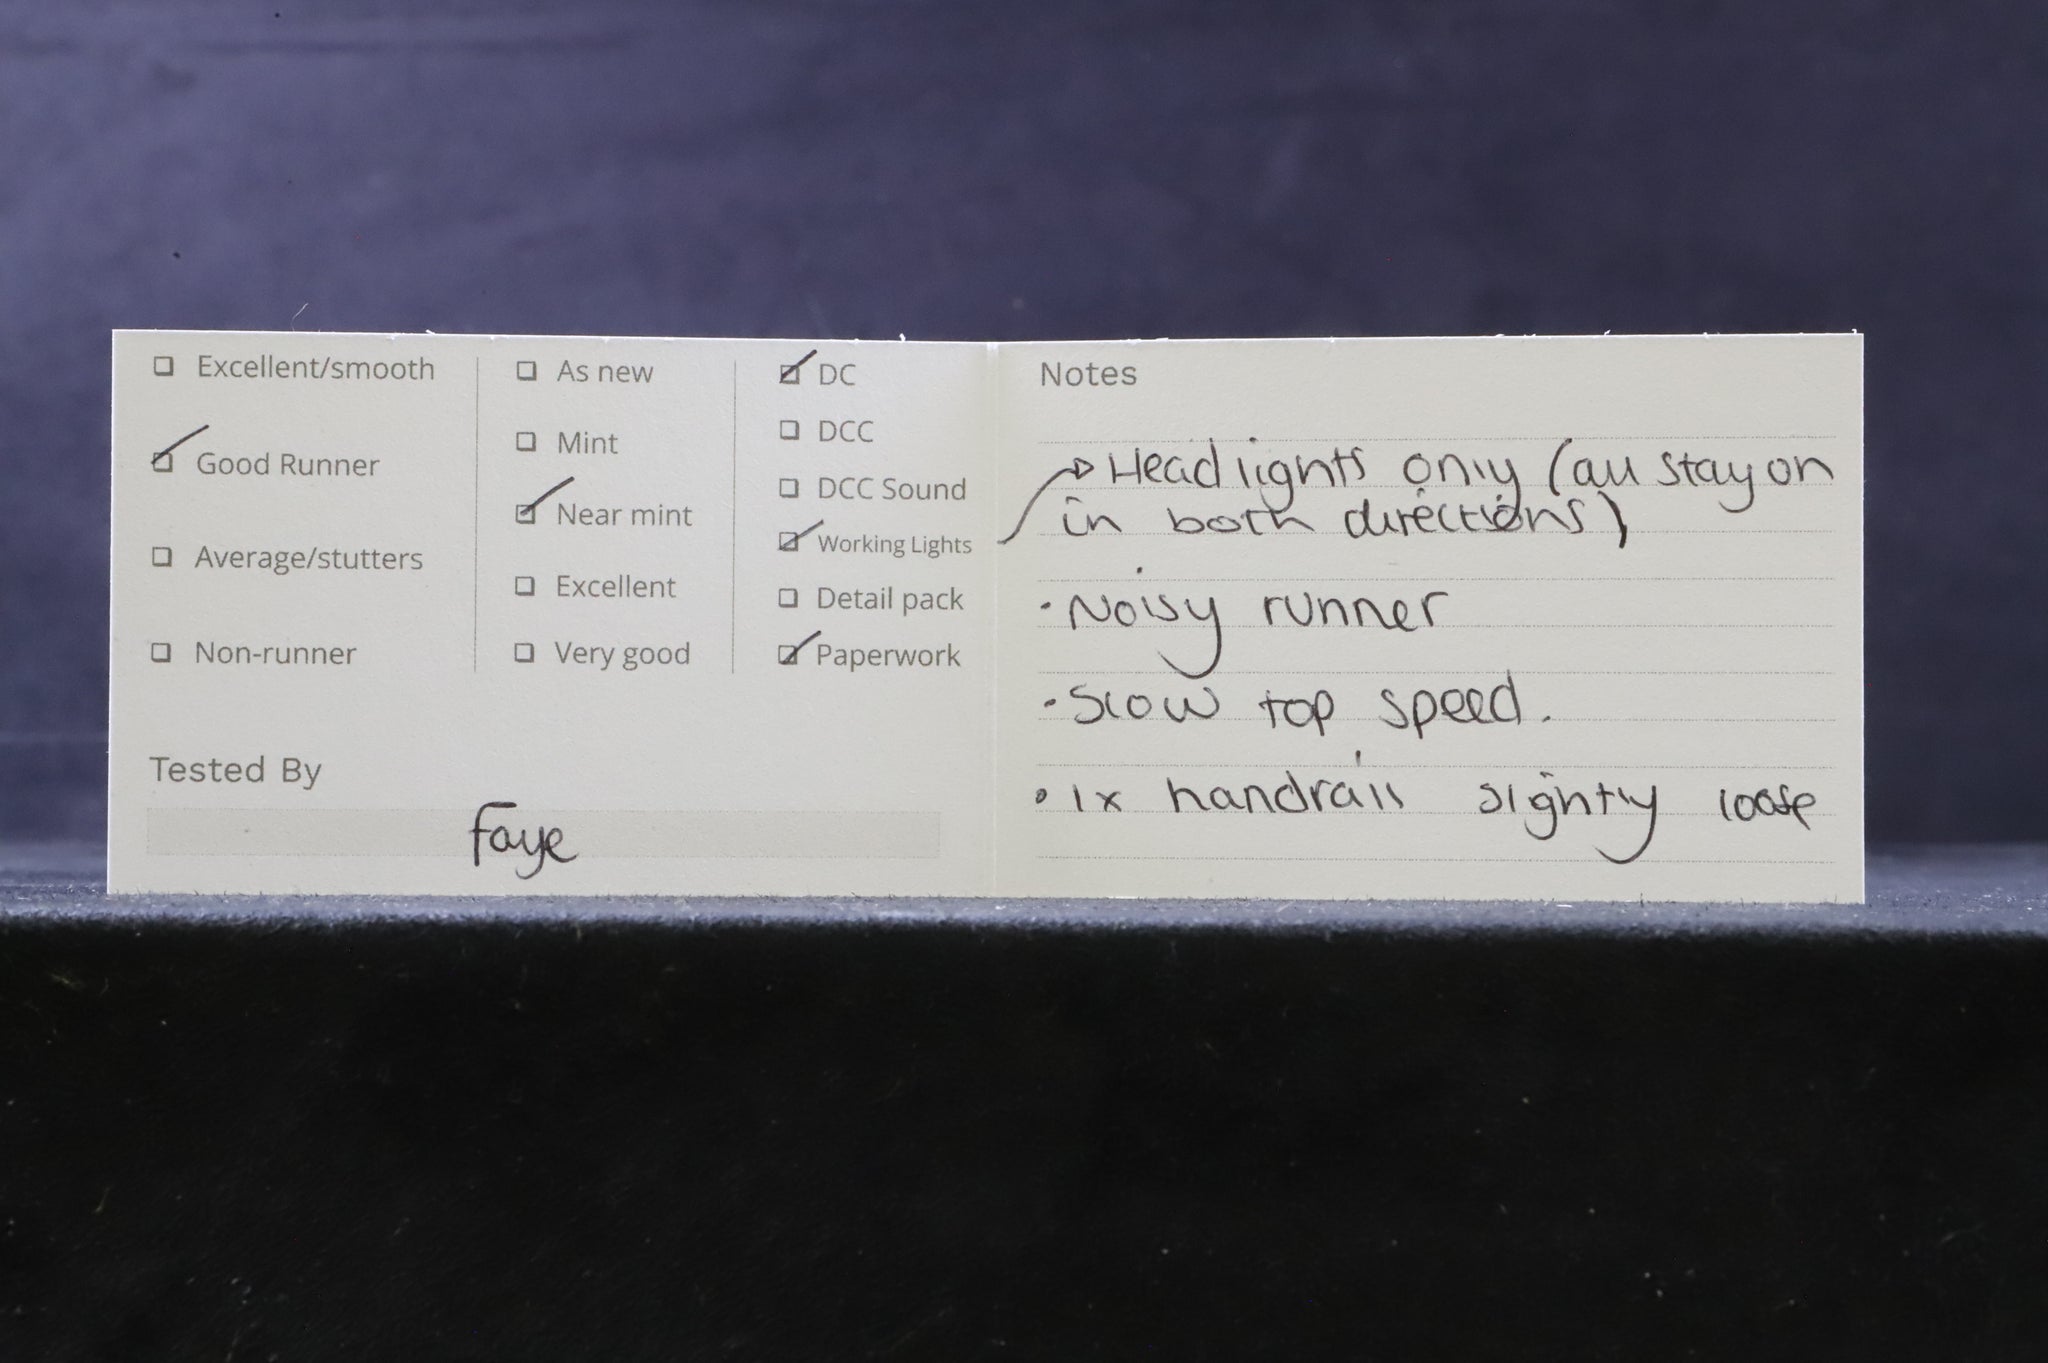 Excellent/smooth
Good Runner
Average/stutters
Non-runner
As new
Mint
Near mint
Excellent
Very good
DC
DCC
DCC Sound
Working Lights
Detail pack
Paperwork
Tested By
Faye
Notes
Headlights only (all stay on
in both directions)
· Noisy runner
· Slow top speed.
· 1x handrail slightly loose